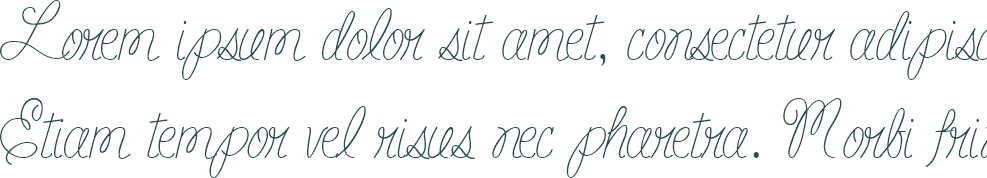 Lorem ipsum dolor sit amet, consectetur adipisc
Etiam tempor vel risus nec pharetra. Morbi fri